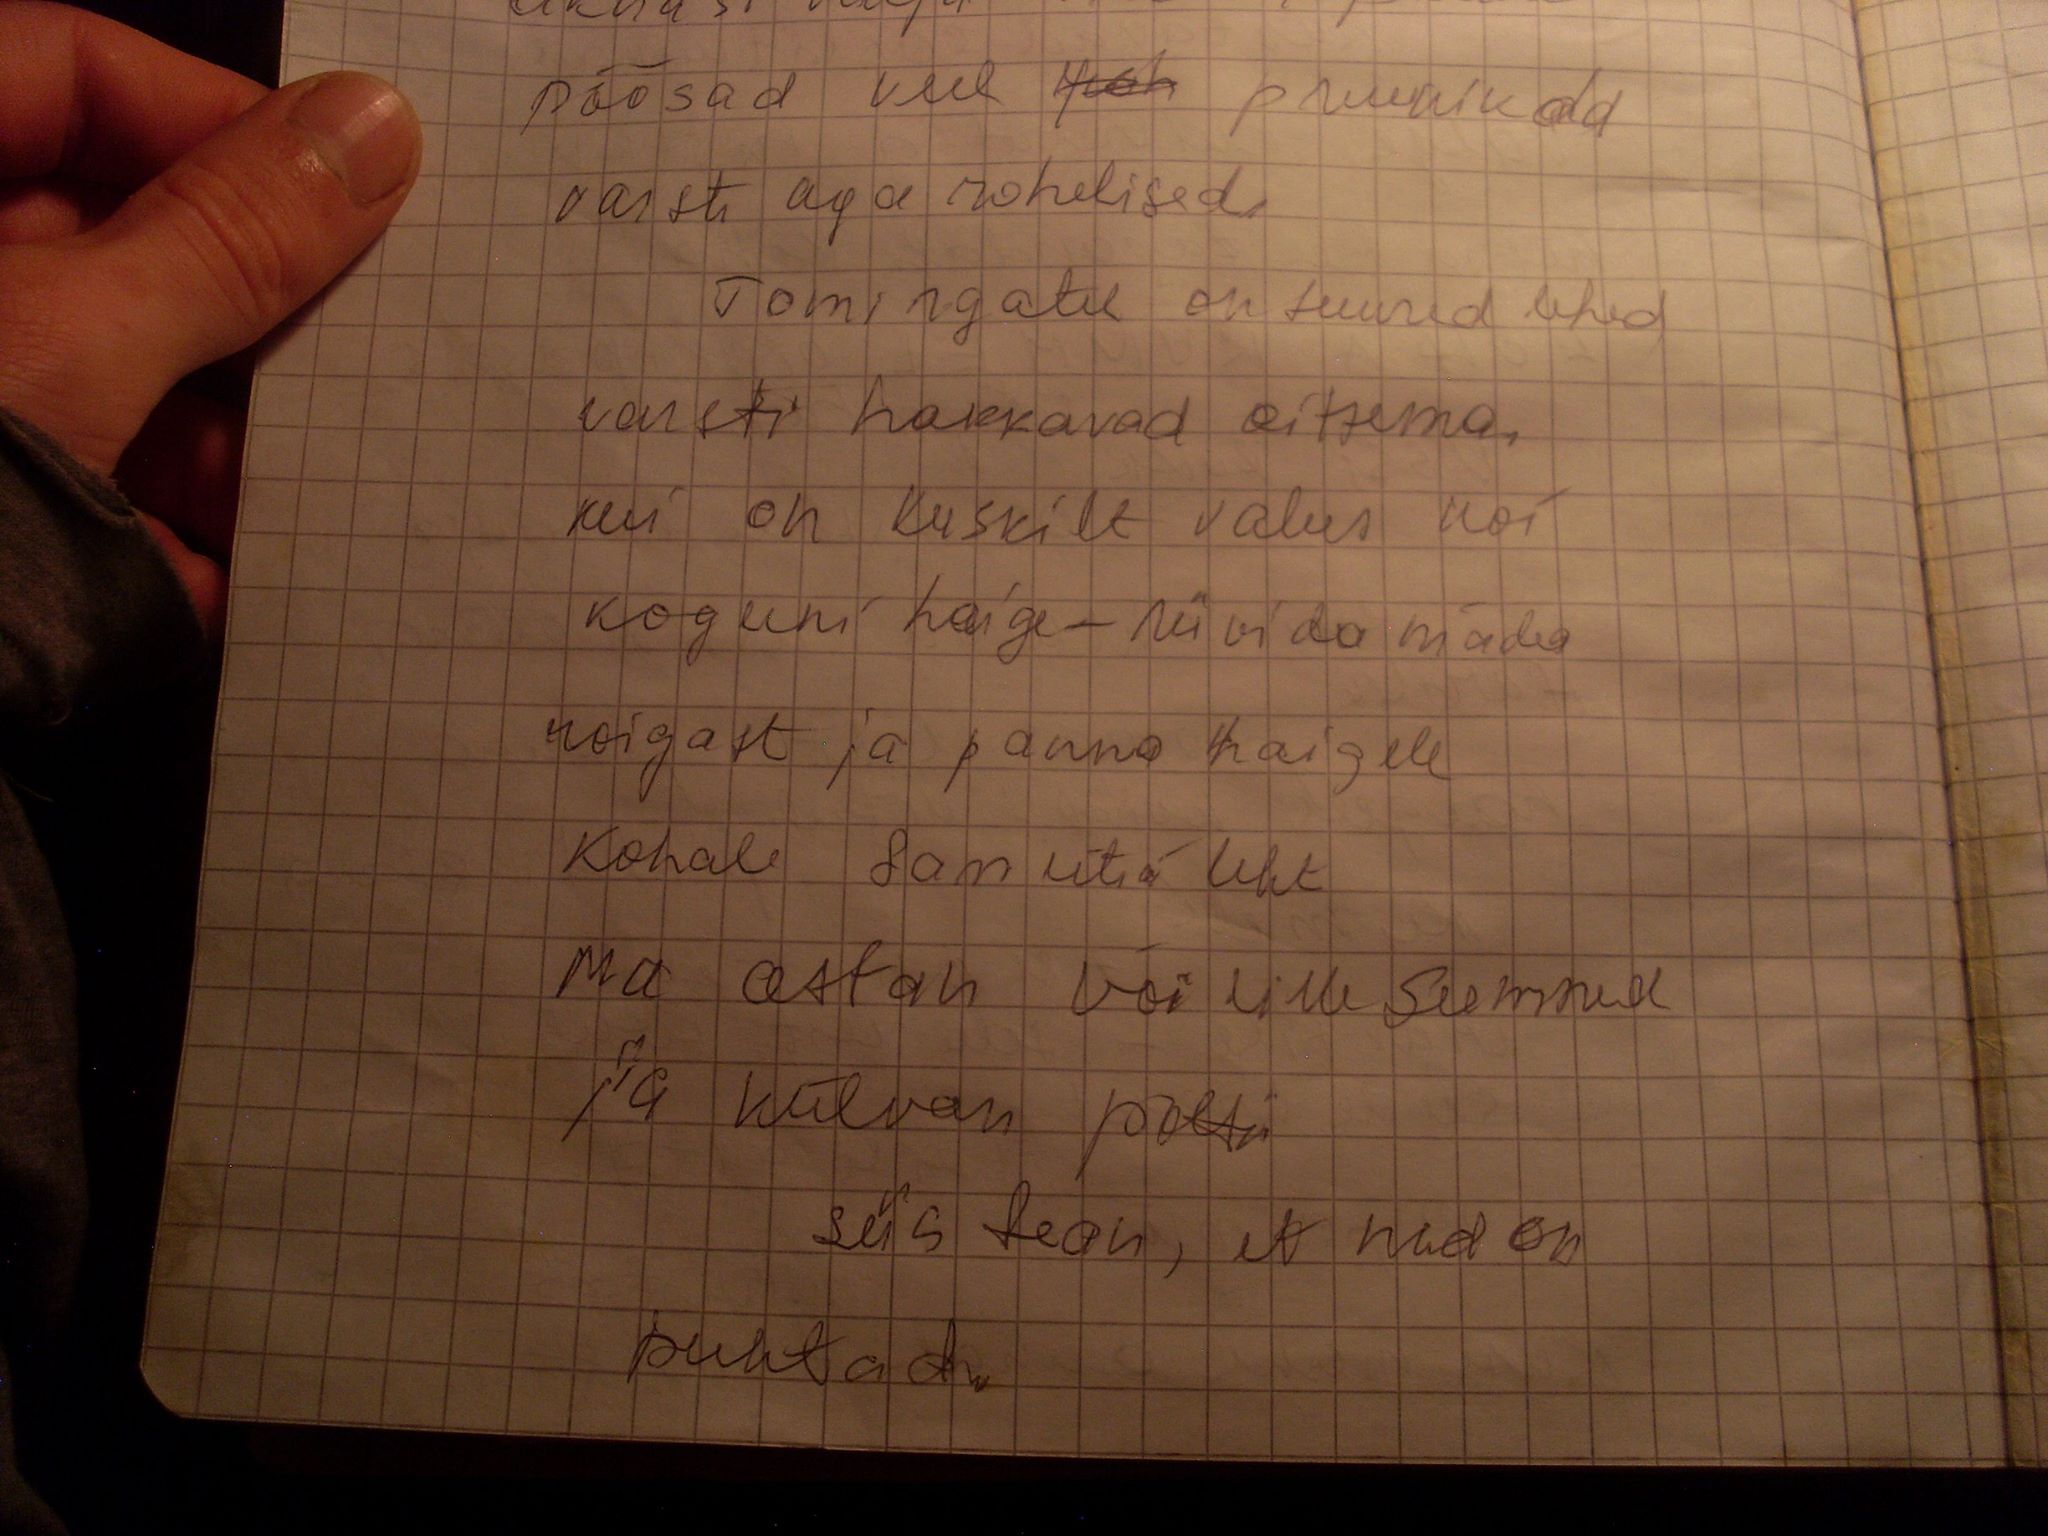 põõsad veel pruunikad
varsti aga rohelised.
Tomingatel on suured lehed
varsti hakkavad õitsema.
kui on kuskilt valus või
koguni haige – riivida mäda
roigast ja panna haigele
kohale
Ma ostan või lille seemned
ja külvan potti
siis tean, et nad on
puhtad.